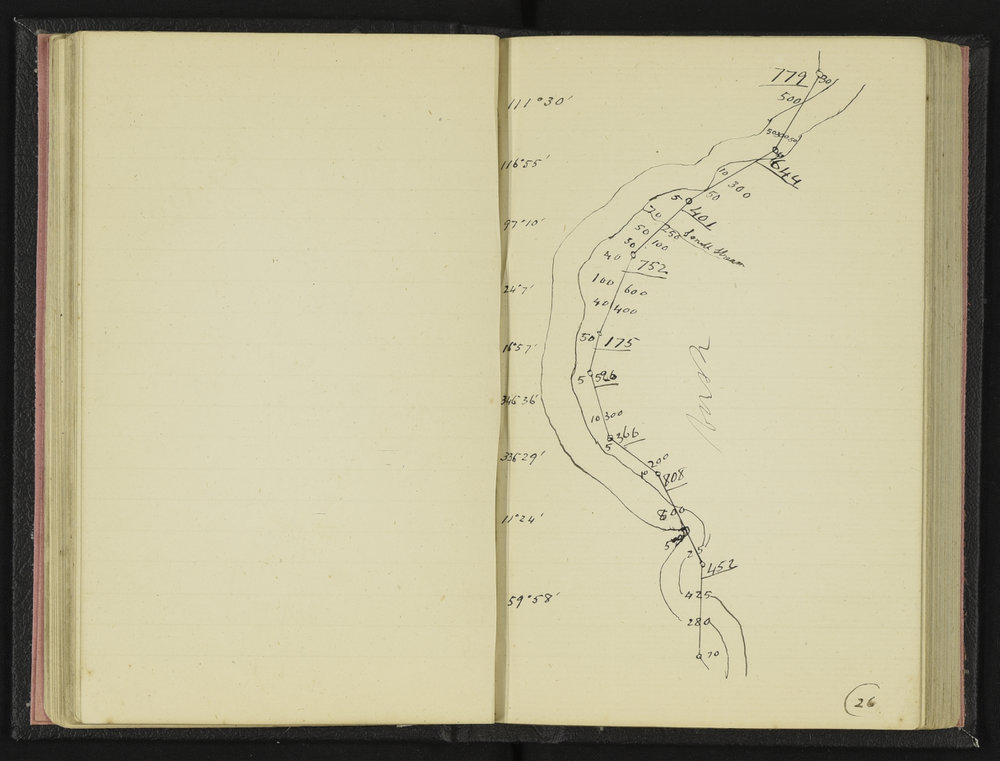 779 30
111°30′
500
50 50
116°55′
644
10 300
50
5
401
97°10′
20
50 250 Small Stream
30 100
40 752
24°7′
100 600
40 400
50 175
16°57′
5 596
346°36′
10 300
366
5
336°29′
200
808
600
11°24′
5
2 5
452
59°58′
425
280
70
26